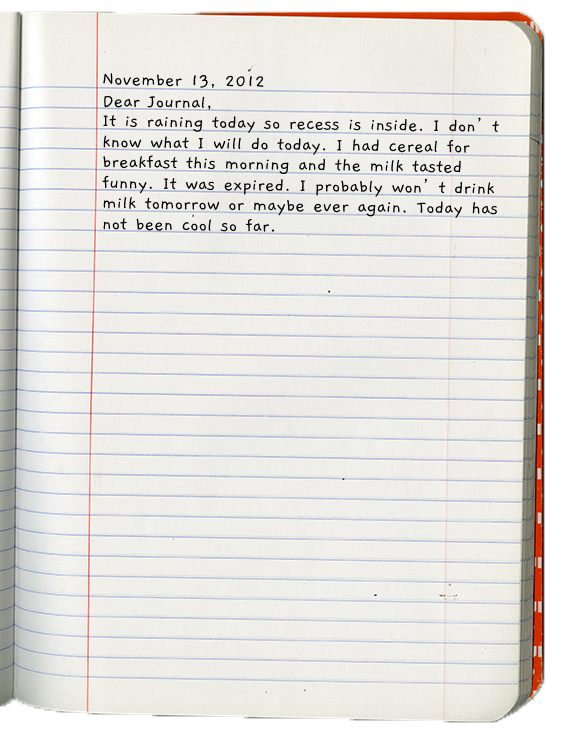 November 13, 2012
Dear Journal,
It is raining today so recess is inside. I don't
know what I will do today. I had cereal for
breakfast this morning and the milk tasted
funny. It was expired. I probably won't drink
milk tomorrow or maybe ever again. Today has
not been cool so far.